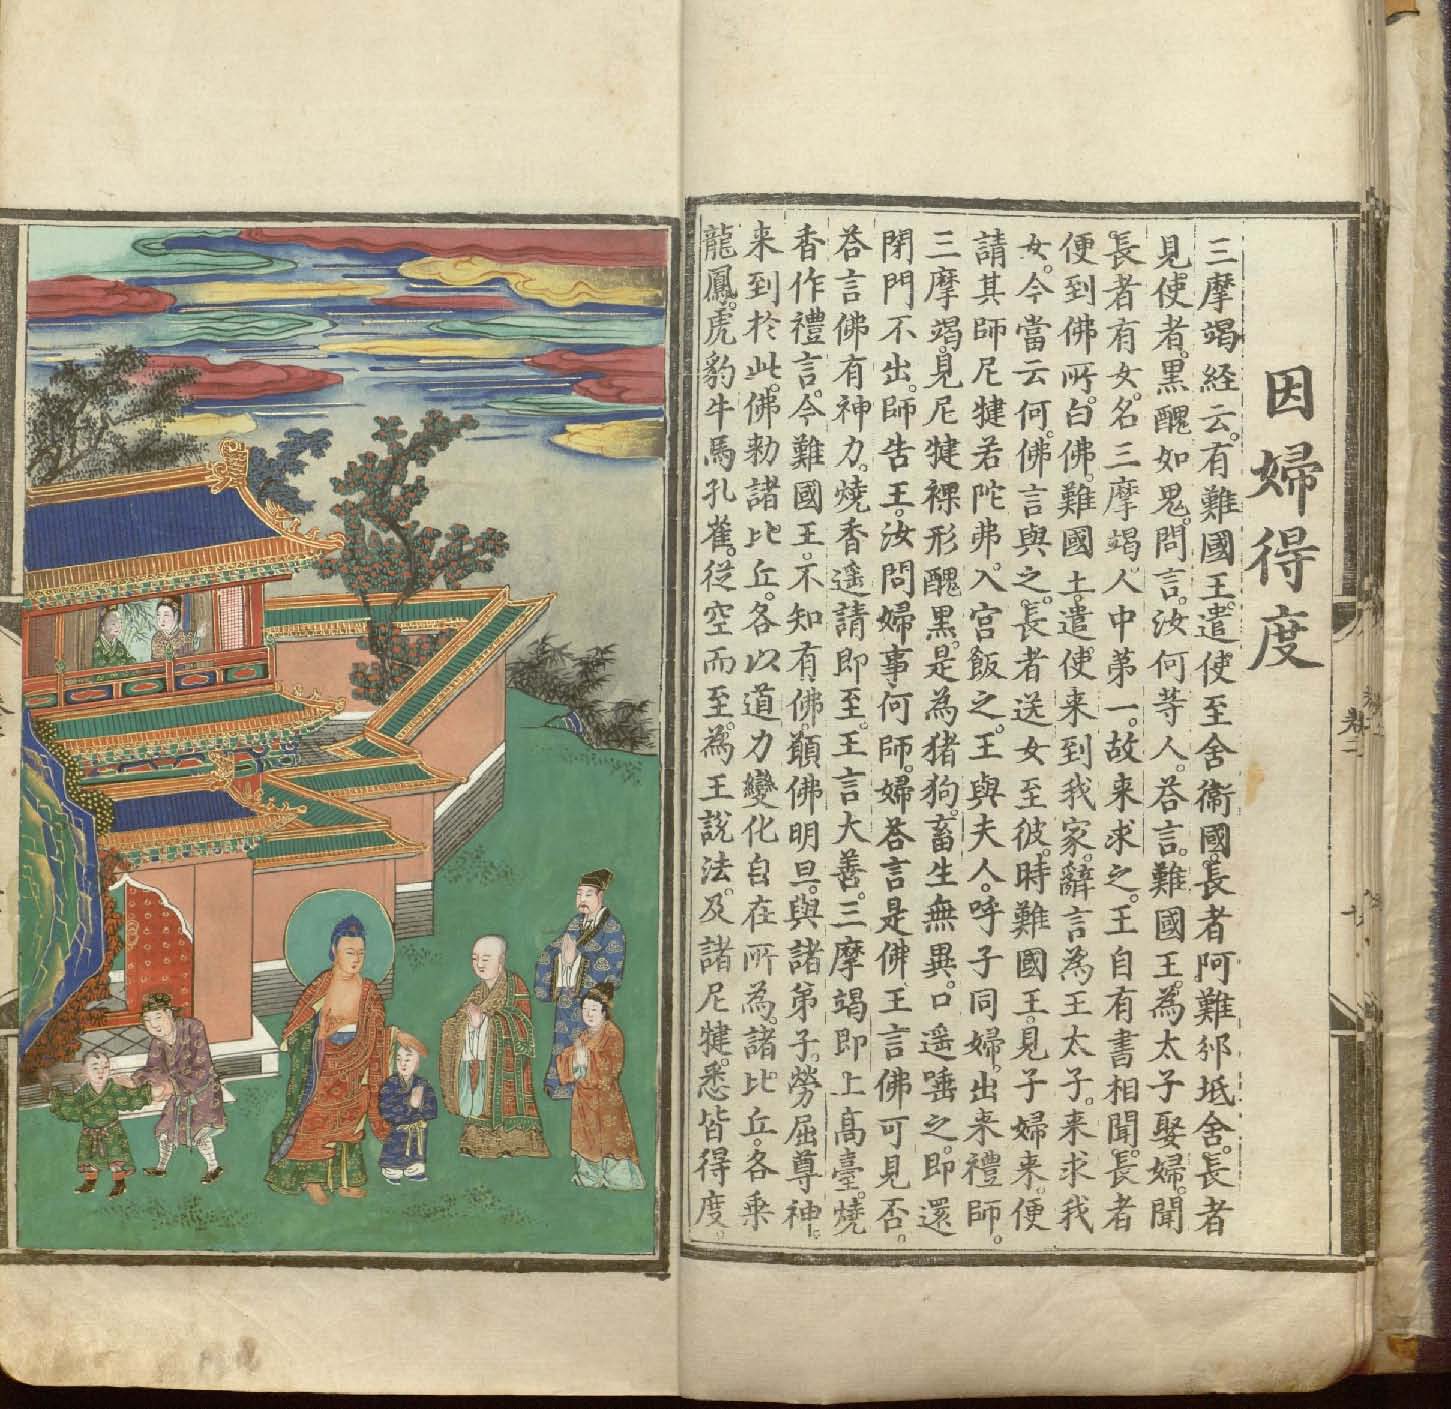 因婦得度
三摩竭経云。有難國王。遣使至舍衞國。長者阿難邠坻舍。長者
見使者。黑醜如鬼。問言。汝何等人。荅言。難國王。為太子娶婦。聞
長者有女。名三摩竭。人中第一。故来求之。王自有書相聞。長者
便到佛所。白佛。難國王。遣使来到我家。辭言為王太子。来求我
女。今當云何。佛言與之。長者送女至彼。時難國王。見子婦来。便
請其師尼犍若陀弗。入宮飯之。王與夫人。呼子同婦。出来禮師。
三摩竭。見尼犍裸形醜黑。是為猪狗。畜生無異。口遥唾之。即還
閉門不出。師告王。汝問婦事何師。婦荅言是佛。王言佛可見否。
荅言佛有神力。燒香遥請即至。王言大善。三摩竭即上高臺。燒
香作禮言。今難國王。不知有佛。願佛明旦。與諸弟子。勞屈尊神。
来到於此。佛勑諸比丘。各以道力變化自在所為。諸比丘。各乗
龍鳳。虎豹牛馬孔雀。從空而至。為王說法。及諸尼犍。悉皆得度。
卷二